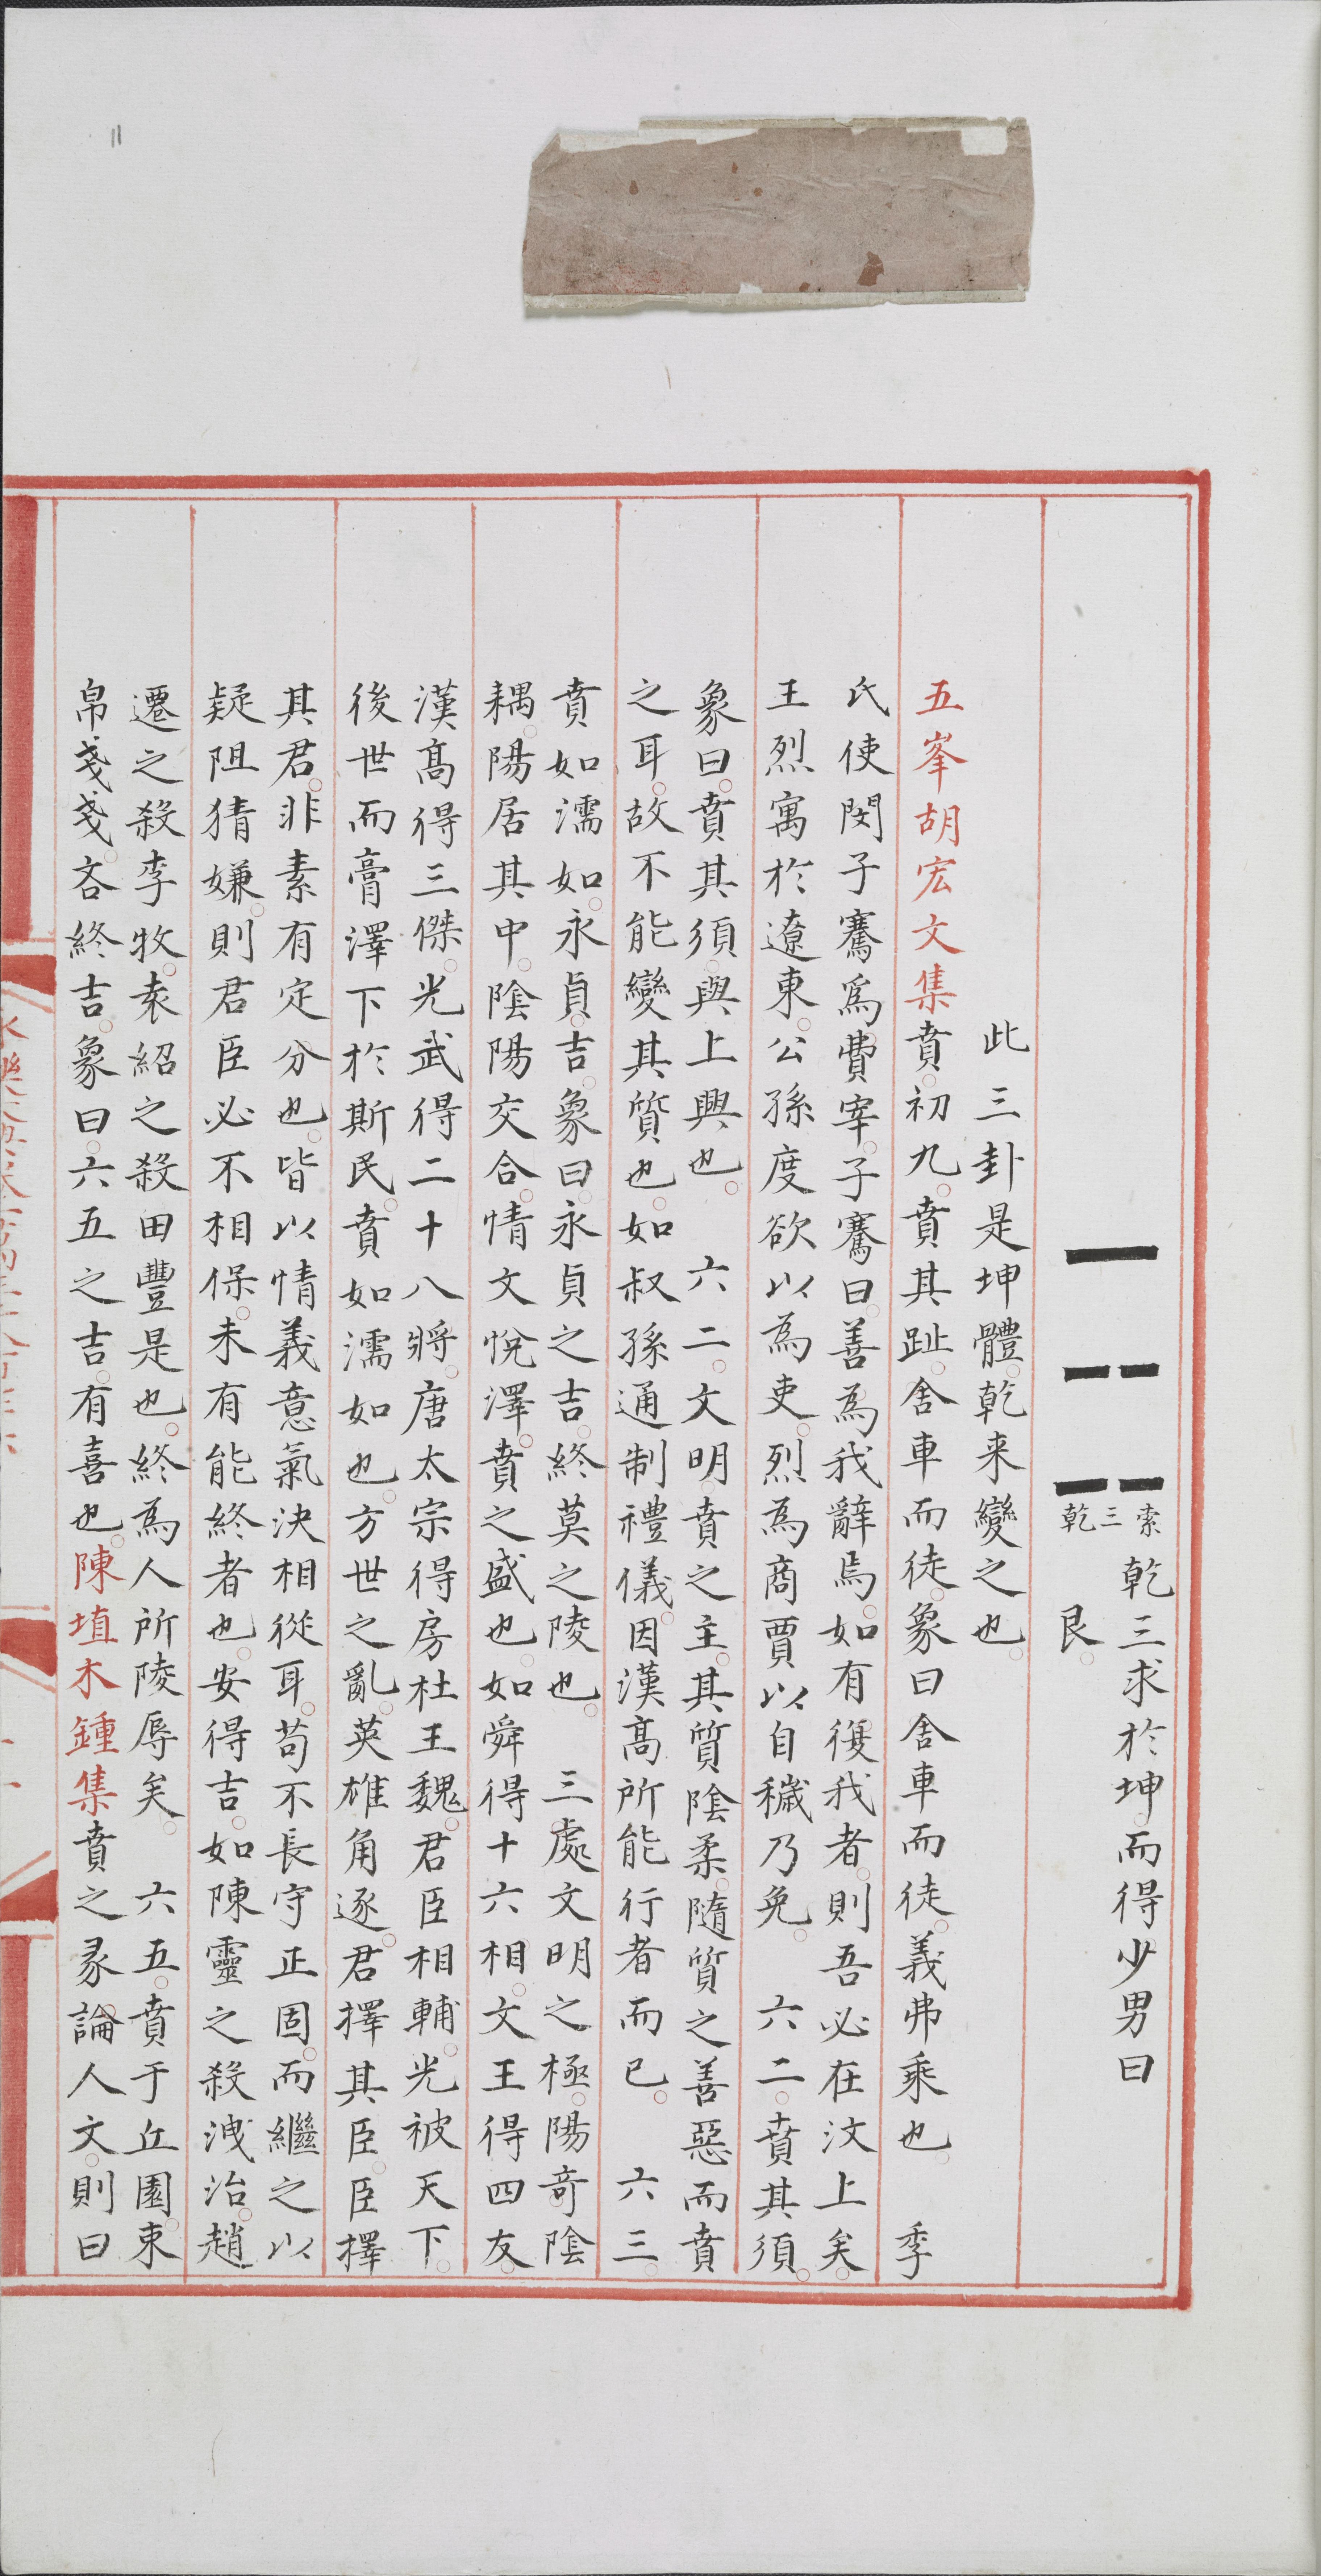 乾三求於坤而得少男曰
索三乾
艮
此三卦是坤體乾来變之也
五峯胡宏文集賁初九賁其趾舍車而徒象曰舍車而徒義弗乘也　季
氏使閔子騫爲費宰子騫曰善為我辭焉如有復我者則吾必在汶上矣
王烈寓於遼東公孫度欲以為吏烈為商賈以自穢乃免　六二賁其須
象曰賁其須與上興也　六二文明賁之主其質陰柔隨質之善惡而賁
之耳故不能變其質也如叔孫通制禮儀因漢高所能行者而已　六三
賁如濡如永貞吉象曰永貞之吉終莫之陵也　三處文明之極陽竒陰
耦陽居其中陰陽交合情文悅澤賁之盛也如舜得十六相文王得四友
漢髙得三傑光武得二十八將唐太宗得房杜王魏君臣相輔光被天下
後世而膏澤下於斯民賁如濡如也方世之亂英雄角逐君擇其臣臣擇
其君非素有定分也皆以情義意氣決相從耳苟不長守正固而繼之以
疑阻猜嫌則君臣必不相保未有能終者也安得吉如陳靈之殺洩治趙
遷之殺李牧袁紹之殺田豐是也終為人所陵辱矣　六五賁于丘園束
帛戔戔吝終吉象曰六五之吉有喜也陳埴木鍾集賁之彖論人文則曰